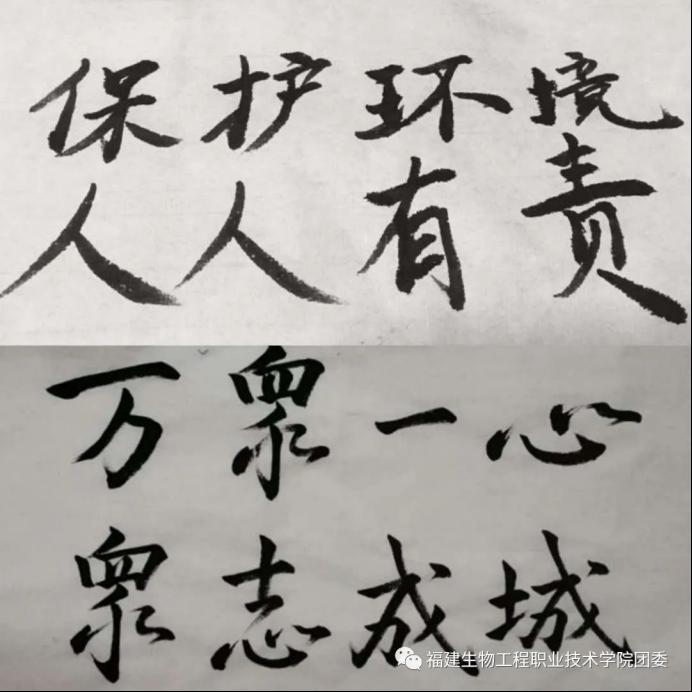 保护环境
人人有责
万衆一心
衆志成城
福建生物工程职业技术学院团委